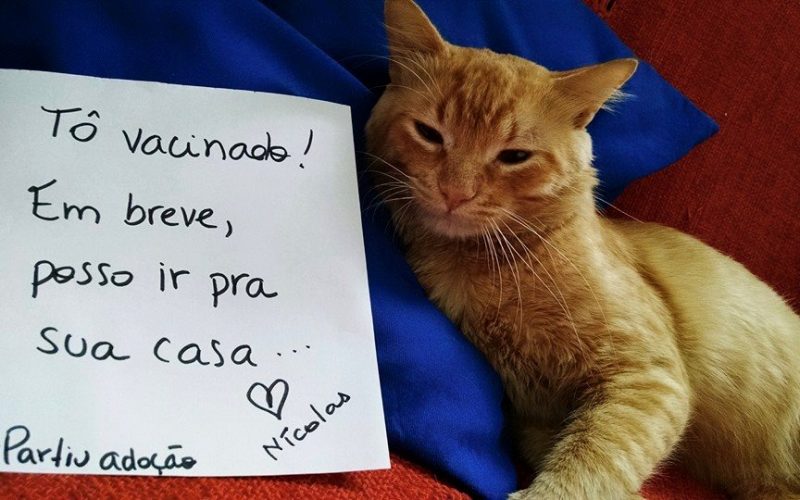 Tô vacinado!
Em breve,
posso ir pra
sua casa...
Nícolas
Partiu adoção